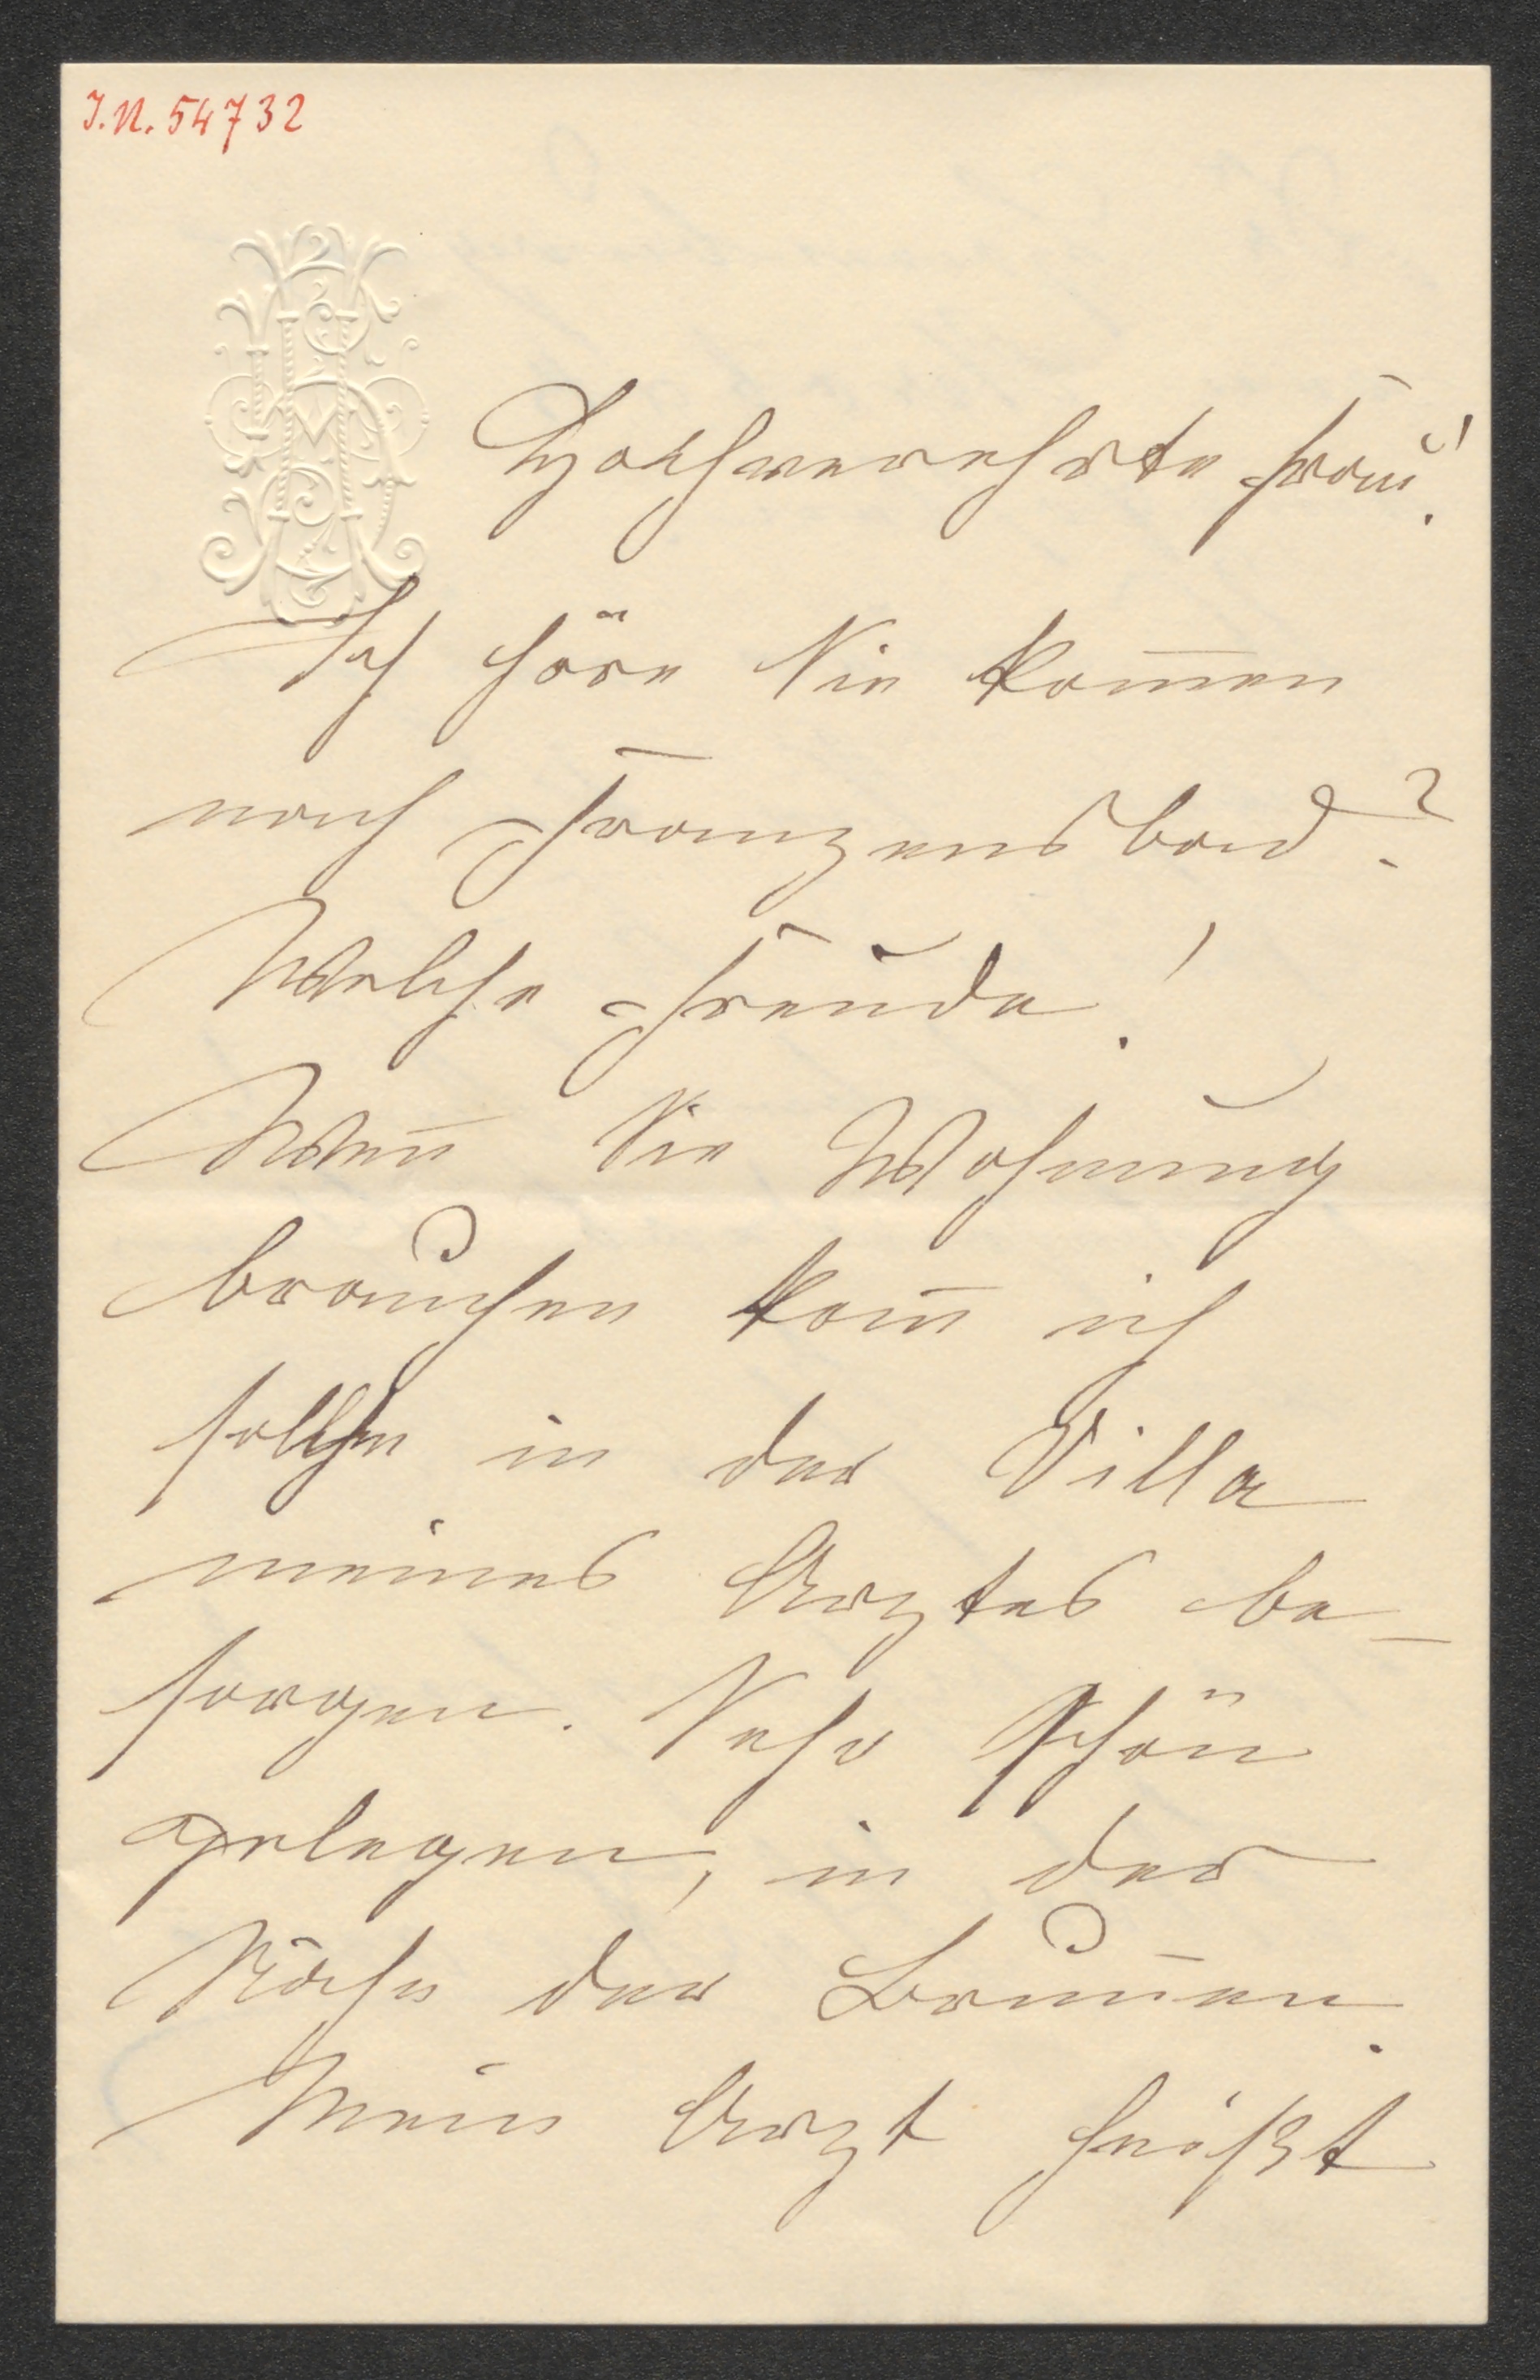 J.N. 54732
Hochverehrte Frau!
Ich höre Sie kom̄en
nach Franzensbad?
Welche Freude!
Wen̄ Sie Wohnung
brauchen kan̄ ich
solche in der Villa
meines Arztes be-
sorgen. Sehr schön
gelegen, in der
Nähe der Brun̄en.
Mein Arzt heißt